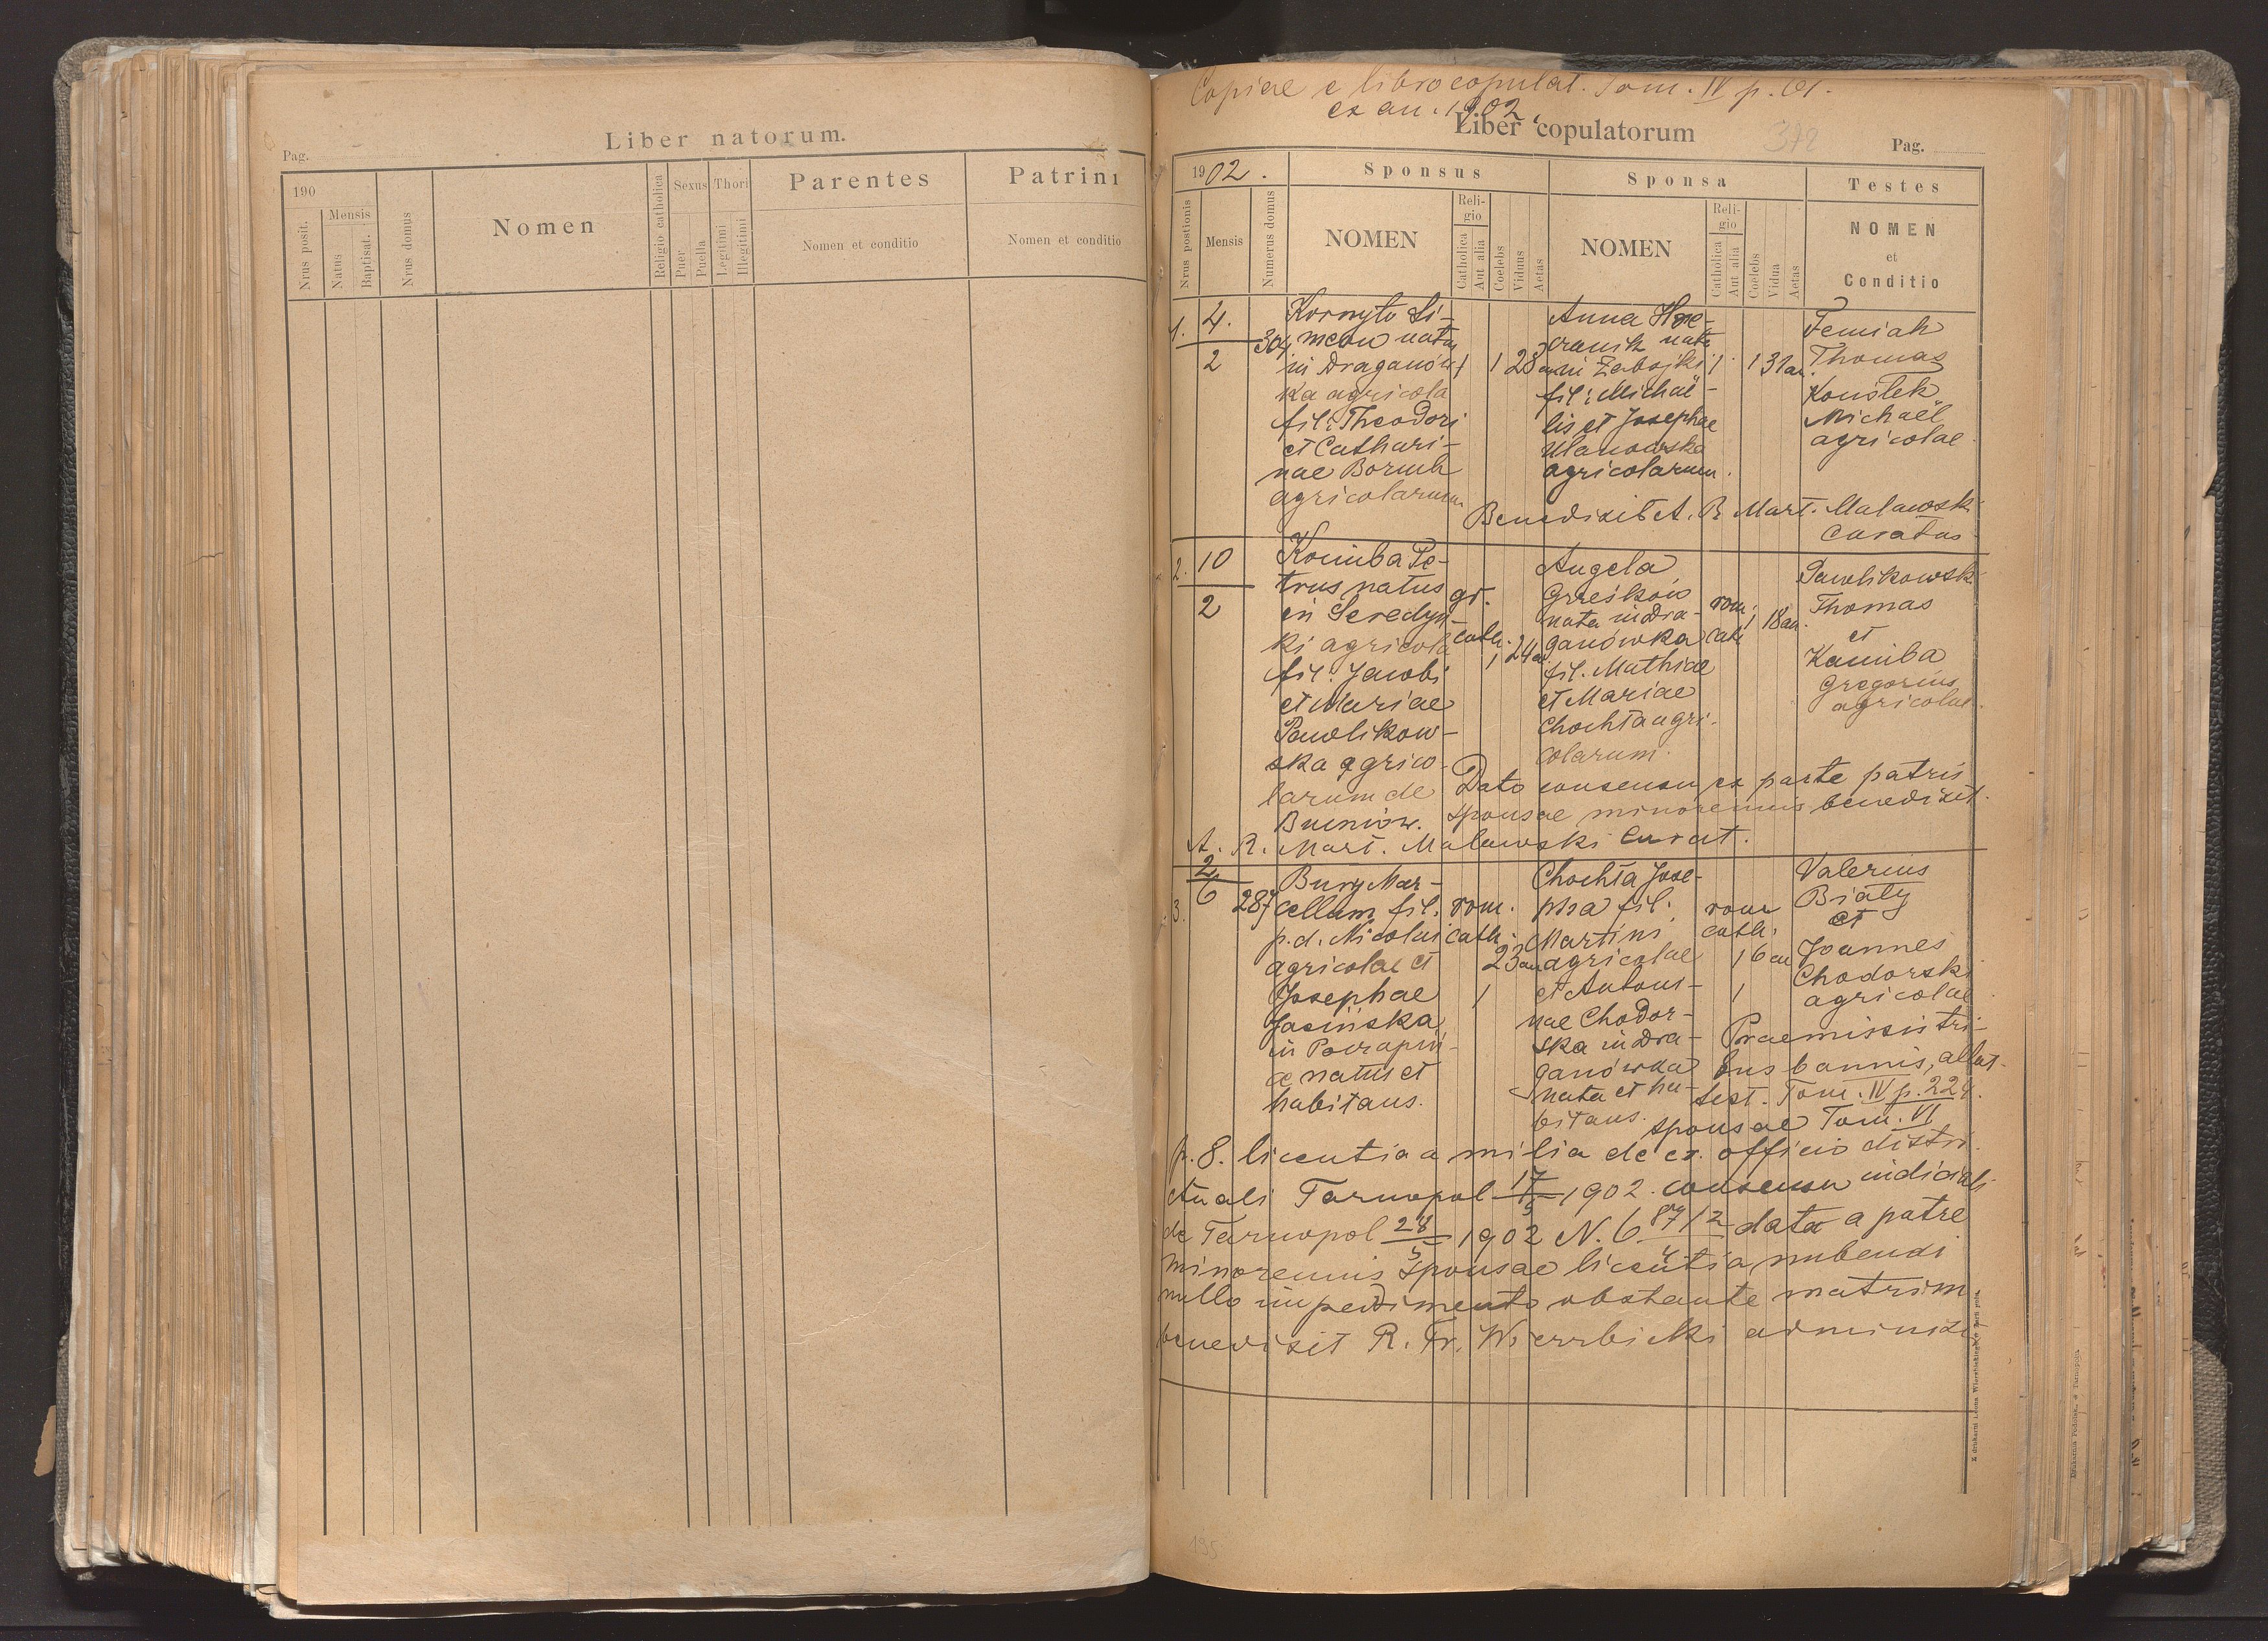 Liber natorum.
Pag.
190
Nrus posit.
Mensis
Natus
Baptisat.
Nrus domus
Nomen
Religio catholica
Sexus
Puer
Puella
Thori
Legitimi
Illegitimi
Parentes
Nomen et conditio
Patrini
Nomen et conditio
Copiae e libro copulat. Tom. IV p. 61.
ex an. 1902.
Liber copulatorum
372
Pag.
1902.
Sponsus
Sponsa
Testes
Nrus postionis
Mensis
Numerus domus
NOMEN
Religio
Catholica
Aut alia
Coelebs
Viduus
Aetas
NOMEN
Religio
Catholica
Aut alia
Coelebs
Vidua
Aetas
NOMEN
et
Conditio
1.
4.
2
304
Kornyło Si-
meon natus
in Draganów-
ka agricola
fil: Theodori
et Cathari-
nae Boruch
agricolarum
1
1
28 an
Anna
nata
in Zabojki
fil: Michae-
lis et Josephae
Ulanowska
agricolarum.
1
1
31 an.
Femiak
Thomas
Konstek
Michaël
agricolae
Benedixit A. R. Mart. Malawski
curatus
2.
10
2
Komiba Pe-
trus natus
in Seredyn-
ki agricola
fil: Jacobi
et Mariae
Pawlikow-
ska agrico-
larum de
Bucniow.
gr.
cath.
1
24 a
Angela
Grześków
nata in Dra-
ganówka
fil. Mathiae
et Mariae
Chochta agri-
colarum.
rom.
cath
1
18 an.
Pawlikowski
Thomas
et
Kamiba
Gregorius
agricolae.
Dato consensu ex parte patris
sponsae minorennis benedixit
A. R. Mart. Malawski curat.
3.
2
6
287
Bury Mar-
cellum fil.
p.d. Nicolai
agricolae et
Josephae
Jasińska
in Poczapin-
ce natus et
habitans.
rom.
cath.
1
23 an
Chochta Jose-
pha fil.
Martini
agricolae
et Antoni-
nae Chodor-
ska in Dra-
ganówka
nata et ha-
bitans.
rom
cath.
1
16 an
Valerius
Biały
et
Joannes
Chodorski
agricolae
Praemissis tri-
bus bannis, allat.
test. Tom. IV p. 224.
sponsae Tom. VI
p. 8. licentia a milia de ex. officio distri
ctuali Tarnopol 17/5 1902. consensu iudiciali
de Tarnopol 28/5 1902 N. 6 87/2 data a patre
minorennis sponsae licentia nubendi
nullo impedimento obstante matrim
benedixit R. Fr. Wierzbicki administ
195